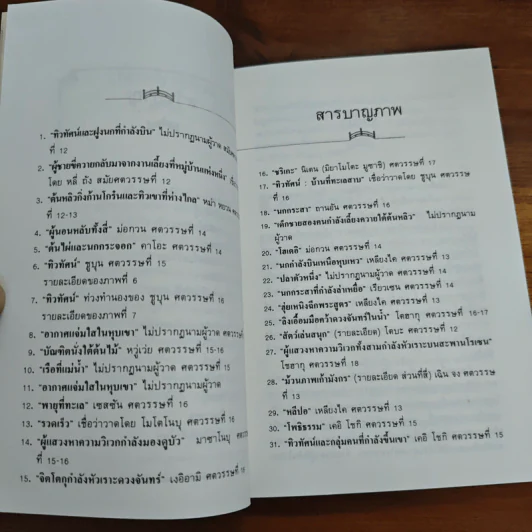 1. "ทิวทัศน์และฝูงนกที่กำลังบิน" ไม่ปรากฏนามผู้วาด
ที่ 12
2. "ผู้ชายขี่ควายกลับมาจากงานเลี้ยงที่หมู่บ้านแห่งหนึ่ง"
โดย หลี่ ถัง สมัยศตวรรษที่ 12
3. "ต้นหลิวกิ่งก้านโกร๋นและทิวเขาที่ห่างไกล" หม่า
ที่ 12-13
4. "ผู้นอนหลับทั้งสี่" ม่อกวน ศตวรรษที่ 14
5. "ต้นไผ่และนกกระจอก" คาโอะ ศตวรรษที่ 14
6. "ทิวทัศน์" ชูบุน ศตวรรษที่ 15
รายละเอียดของภาพที่ 6
7. "ทิวทัศน์" ท่วงทำนองของ ชูบุน ศตวรรษที่ 16
รายละเอียดของภาพที่ 7
8. "อากาศแจ่มใสในหุบเขา" ไม่ปรากฏนามผู้วาด
9. "บัณฑิตนั่งใต้ต้นไม้" หวู่เว่ย ศตวรรษที่ 15-16
10. "เรือที่แม่น้ำ" ไม่ปรากฏนามผู้วาด ศตวรรษที่ 16
11. "อากาศแจ่มใสในหุบเขา" ไม่ปรากฏนามผู้วาด
12. "พายุที่ทะเล" เซสซัน ศตวรรษที่ 16
13. "รวดเร็ว" เชื่อว่าวาดโดย โมโตโนบุ ศตวรรษที่ 16
14. "ผู้แสวงหาความวิเวกกำลังมองดูบัว" มาซาโนบุ ศตวรรษ
ที่ 15-16
15. "จิตโตกุกำลังหัวเราะดวงจันทร์" เงอิอามิ ศตวรรษที่ 16
สารบาญภาพ
16. "ชริเกะ" นิเตน (มิยาโมโตะ มูซาชิ) ศตวรรษที่ 17
17. "ทิวทัศน์ : บ้านที่ทะเลสาบ" เชื่อว่าวาดโดย ชูบุน ศตวรรษ
ที่ 16
18. "นกกระสา" ถานอัน ศตวรรษที่ 16
19. "เด็กชายสองคนกำลังเลี้ยงควายใต้ต้นหลิว" ไม่ปรากฏนาม
ผู้วาด
20. "โฮเตอิ" ม่อกวน ศตวรรษที่ 14
21. "นกกำลังบินเหนือหุบเหว" เหลียงไค ศตวรรษที่ 13
22. "ปลาตัวหนึ่ง" ไม่ปรากฏนามผู้วาด ศตวรรษที่ 14
23. "นกกระสาที่กำลังล่าเหยื่อ" เรียวเซน ศตวรรษที่ 14
24. "ฮุ่ยเหนิงฉีกพระสูตร" เหลียงไค ศตวรรษที่ 13
25. "ลิงเอื้อมมือคว้าดวงจันทร์ในน้ำ" โตฮากุ ศตวรรษที่ 16-17
26. "สัตว์เล่นสนุก" (รายละเอียด) โตบะ ศตวรรษที่ 12
27. "ผู้แสวงหาความวิเวกทั้งสามกำลังหัวเราะบนสะพานโรเซน"
โชฮากุ ศตวรรษที่ 18
28. "ม้วนภาพเก้ามังกร" (รายละเอียด ส่วนที่สี่) เฉิน จง ศตวรรษ
ที่ 13
29. "หลีป๋อ" เหลียงไค ศตวรรษที่ 13
30. "โพธิธรรม" เคอิ โชกิ ศตวรรษที่ 15
31. "ทิวทัศน์และกลุ่มคนที่กำลังขึ้นเขา" เคอิ โชกิ ศตวรรษที่ 15